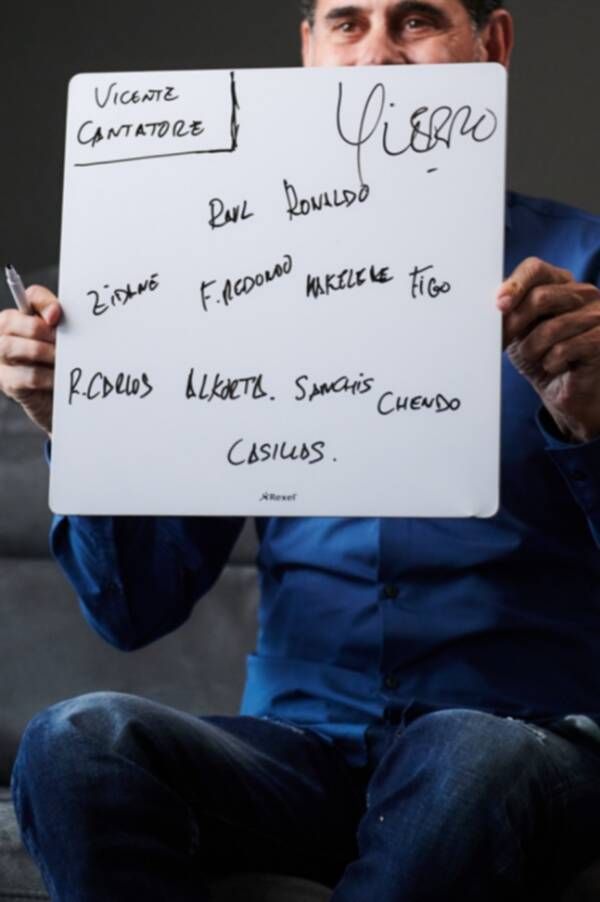 VICENTE
CANTATORE
HIERRO
RAUL RONALDO
ZIDANE F.REDONDO MAKELELE FIGO
R.CARLOS ALKORTA. SANCHIS CHENDO
CASILLAS.
Rexel